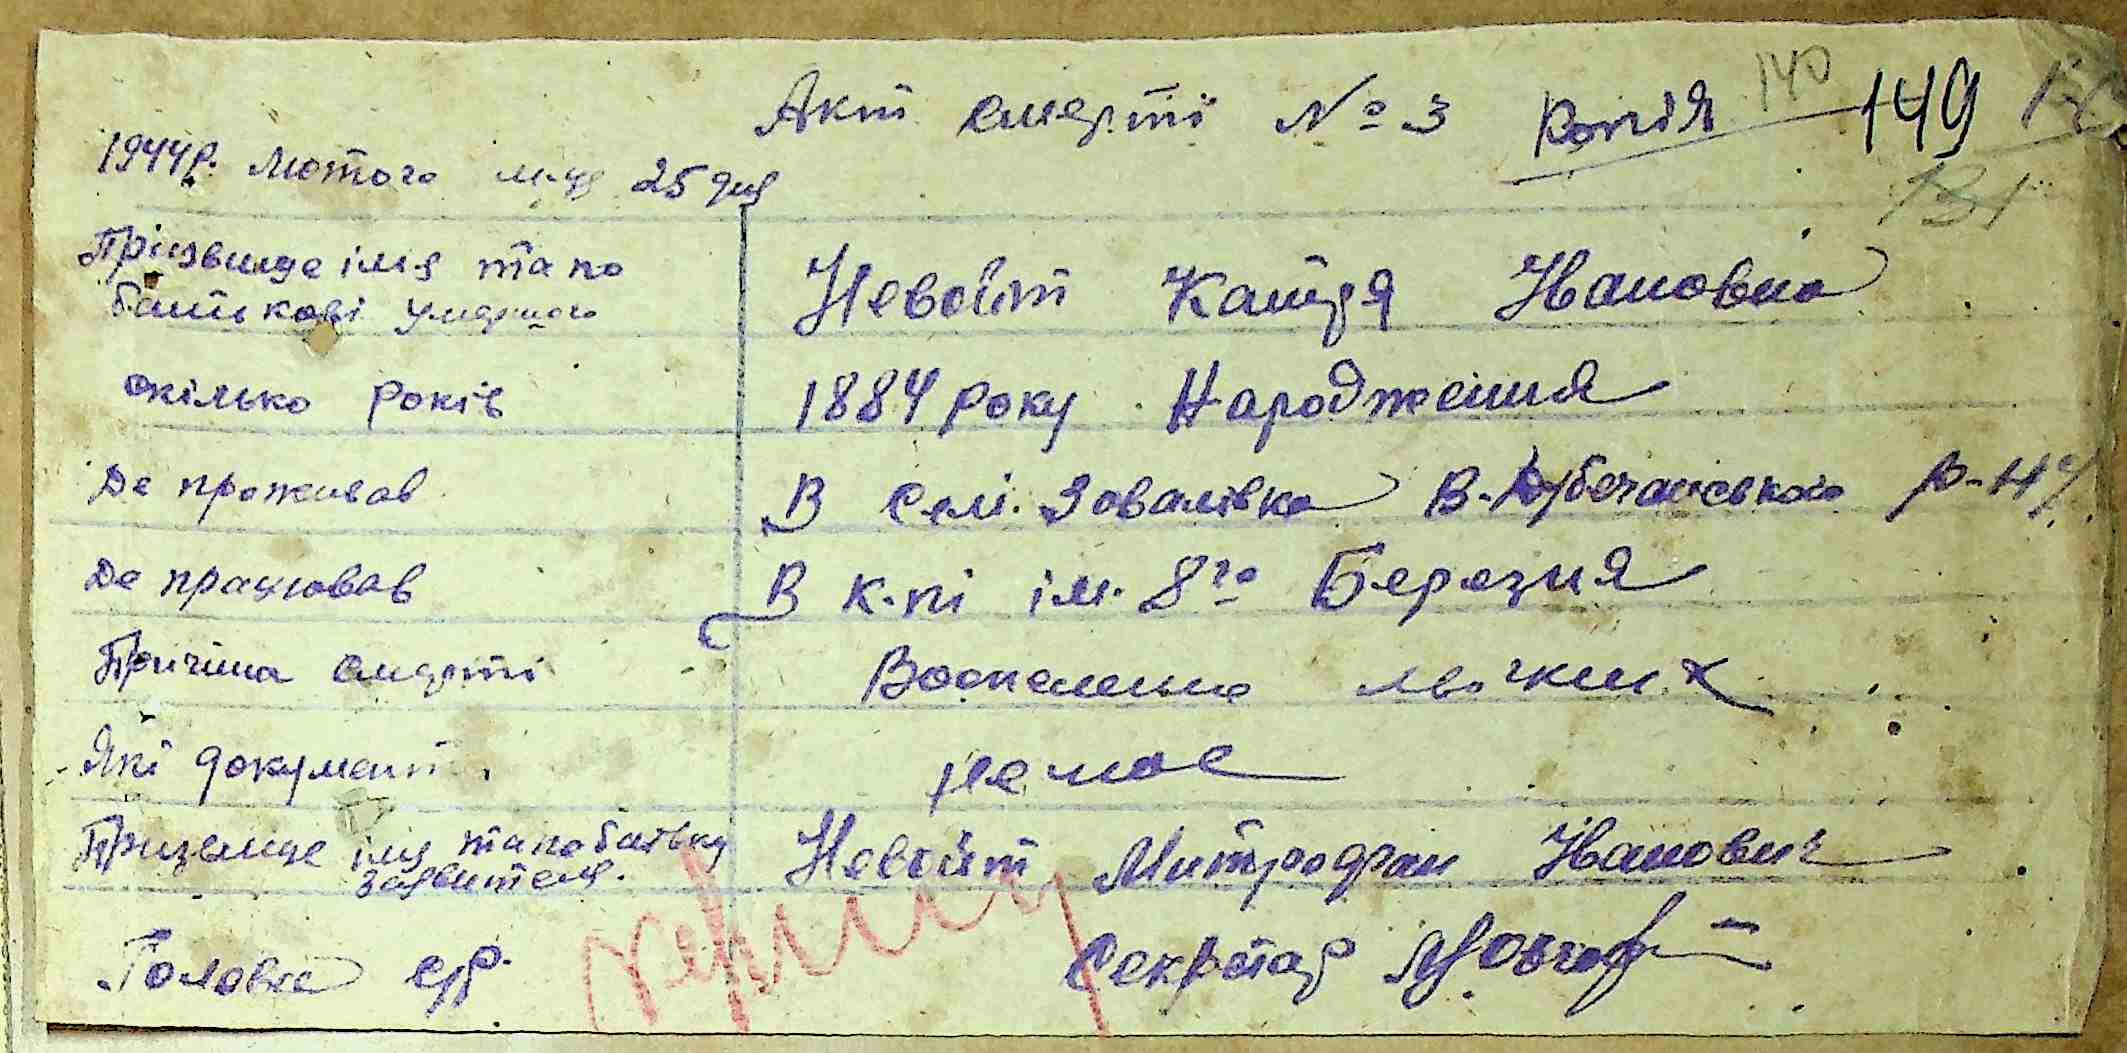 Акт смерті № 3 копія 140 149
131
1944 р. лютого м-ця 25 дня
Прізвище імя та по батькові умершого Невойт Катря Ивановна
скілько років 1884 року Народження
Де проживав В селі Ховалівка В-Дубечанського р-ну
Де працював В к-пі ім. 8го Березня
Причина смерті Воспеление льогких
Які документ. немає
Призвище імя та по батьку заявителя. Невойт Митрофан Иванович
Голова с/р. Секретар